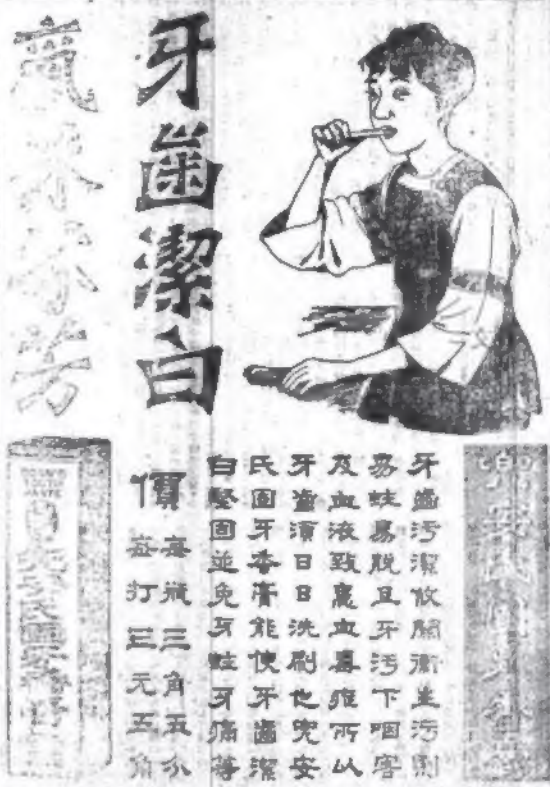 牙齒潔白
氣味芬芳
兜安氏固牙香膏
牙齒污潔攸關衛生污則
易蛀易脫且牙污下咽害
及血液致患血毒症所以
牙齒須日日洗刷也兜安
氏固牙香膏能使牙齒潔
白堅固並免牙蛀牙痛等
價
每瓶三角五分
每打三元五角